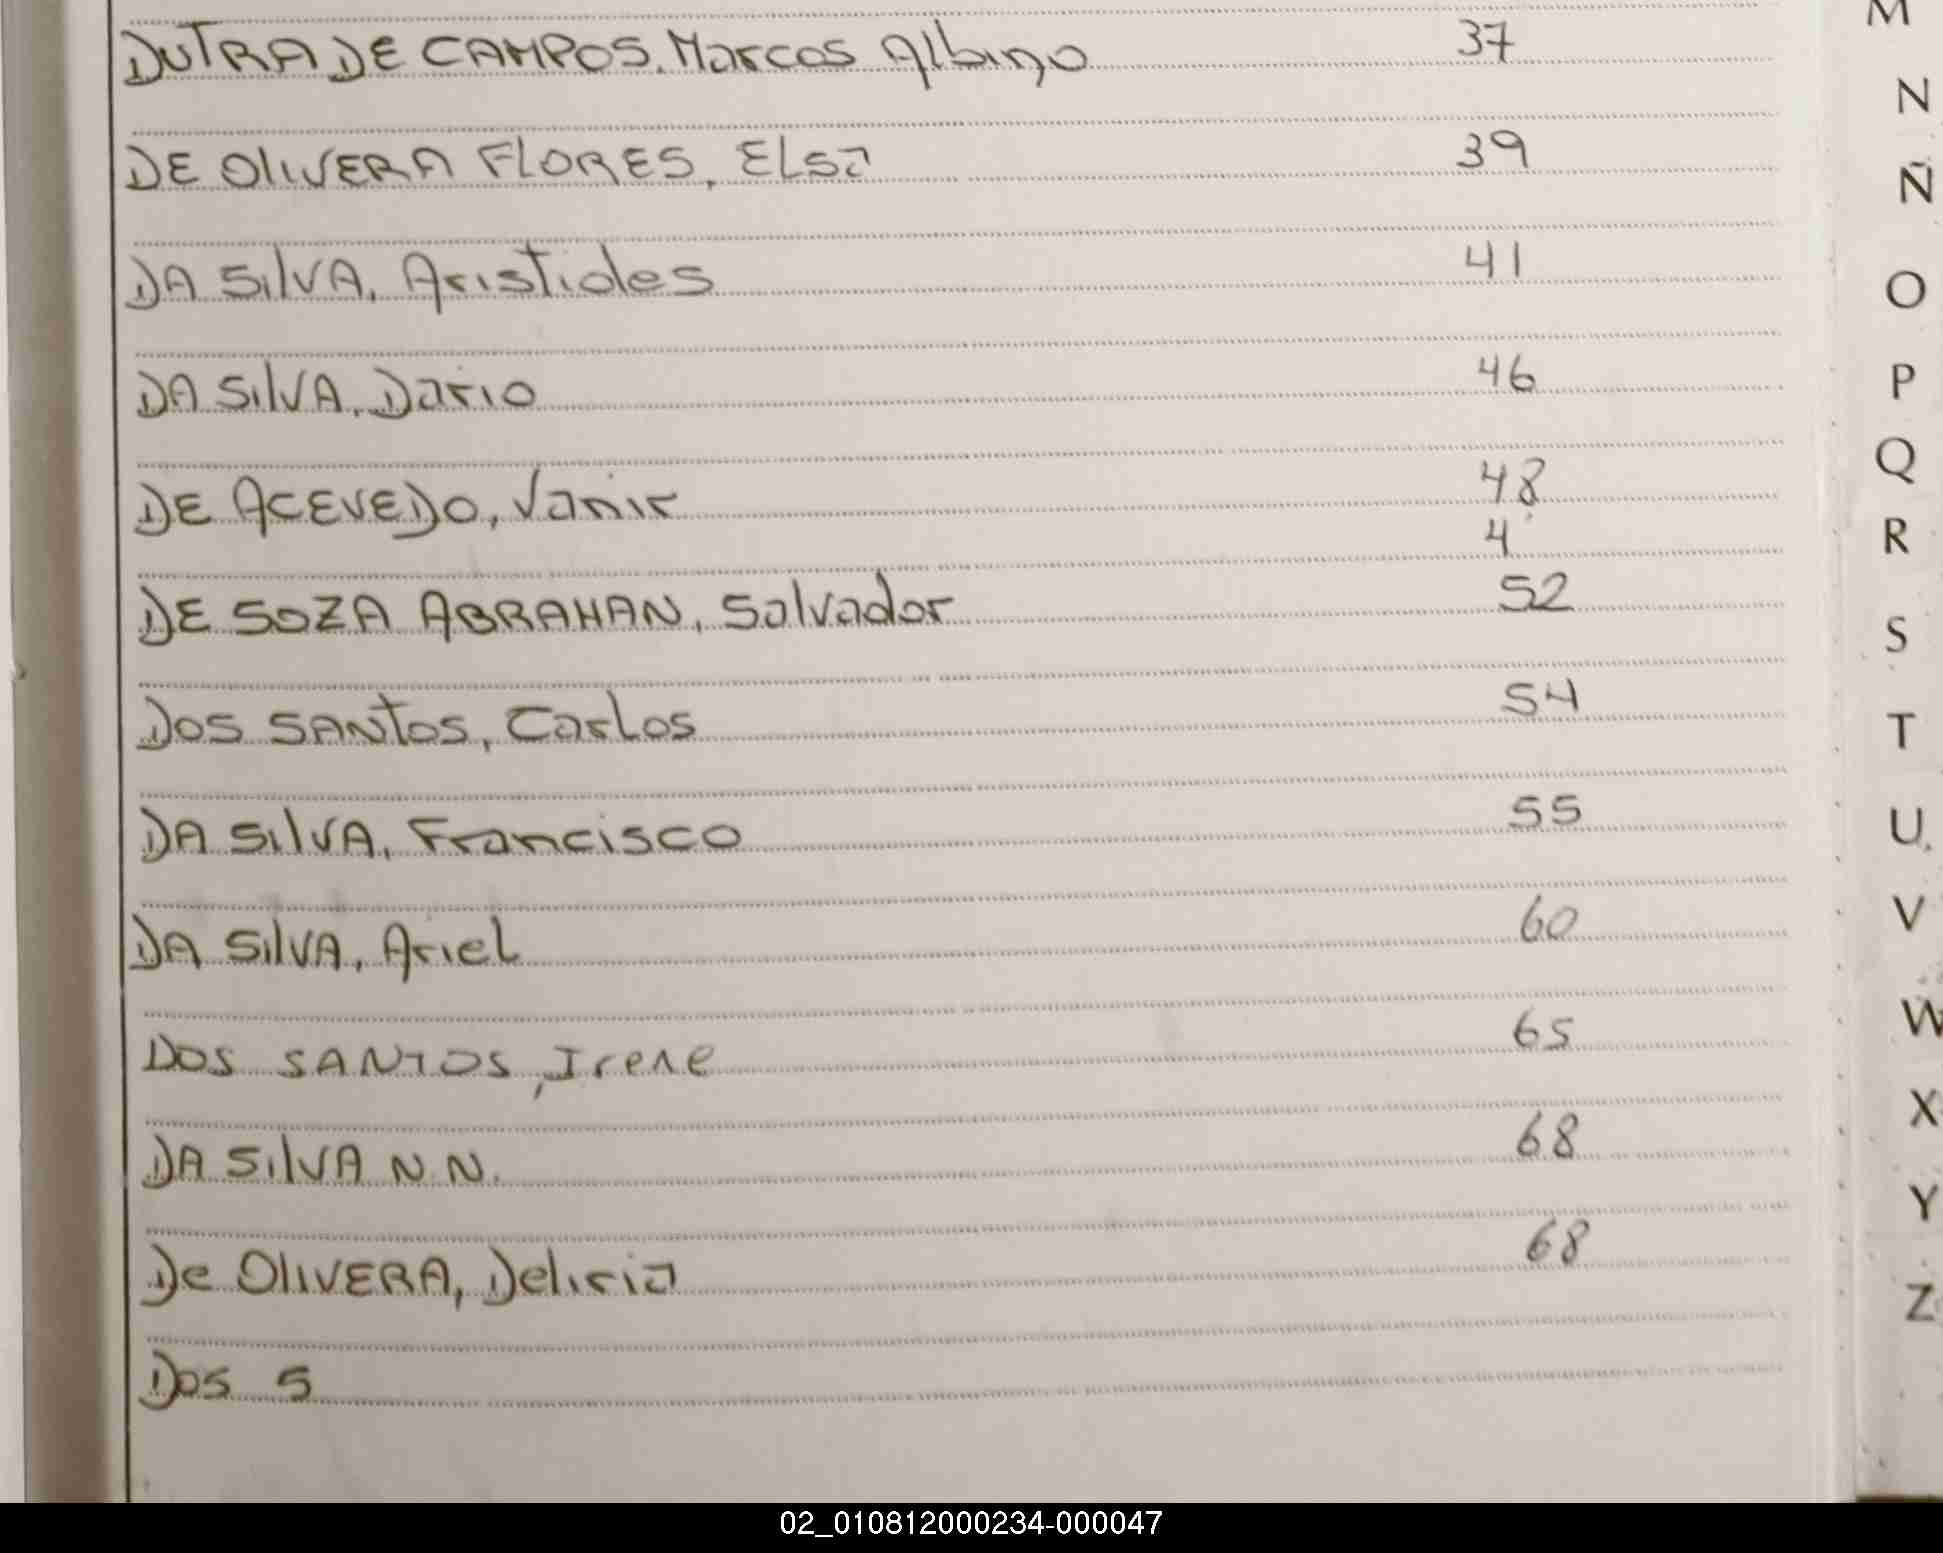 DUTRA DE CAMPOS. Marcos Albino 37
DE OLIVERA FLORES, ELSa 39
DA SILVA, Aristides 41
DA SILVA, Dario 46
DE ACEVEDO, Vanir 48
4
DE SOZA ABRAHAN, Salvador 52
DOS SANTOS, Carlos 54
DA SILVA, Francisco 55
DA SILVA, Ariel 60
DOS SANTOS, Irene 65
DA SILVA N.N. 68
De OLIVERA, Deliria 68
DOS S
M
N
Ñ
O
P
Q
R
S
T
U
V
W
X
Y
Z
02_010812000234-000047